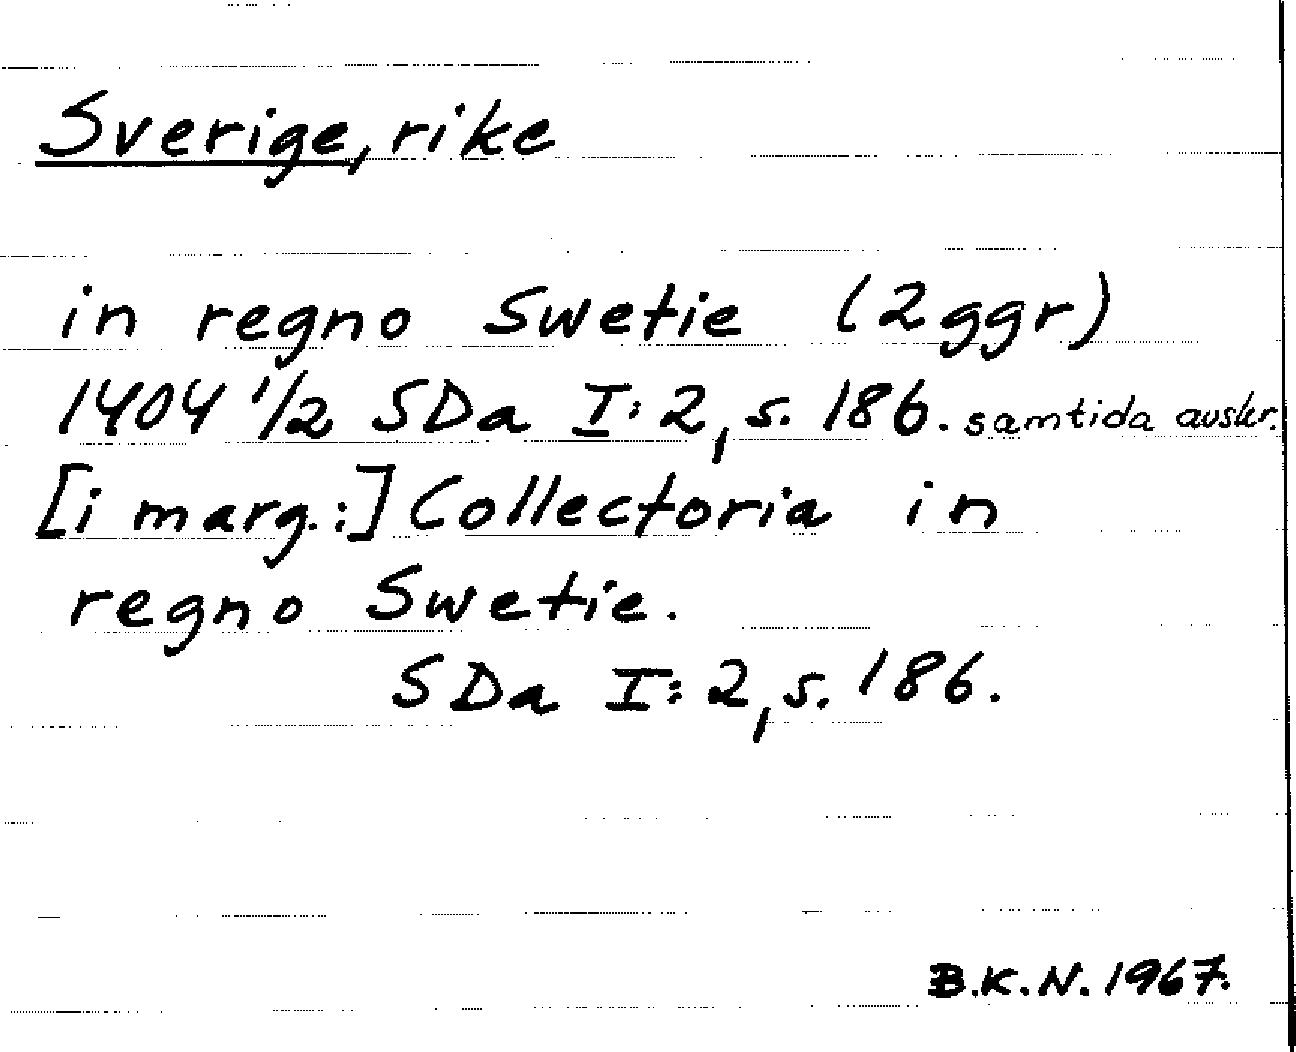 Sverige, rike
in regno Swetie (2ggr)
1404 1/2 SDa I:2, s. 186. samtida avskr.
[i marg.:] Collectoria in
regno Swetie.
SDa I:2, s. 186.
B.K.N. 1967.